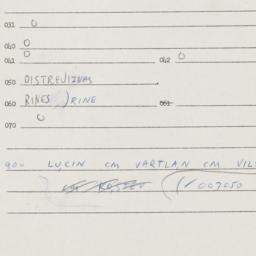 031 0
040 0
041 0 042 0
050 DISTREUIZNAS
060 RINES RINE 061
070 0
900 LUCIN CM VARTLAN CM VILI
007050